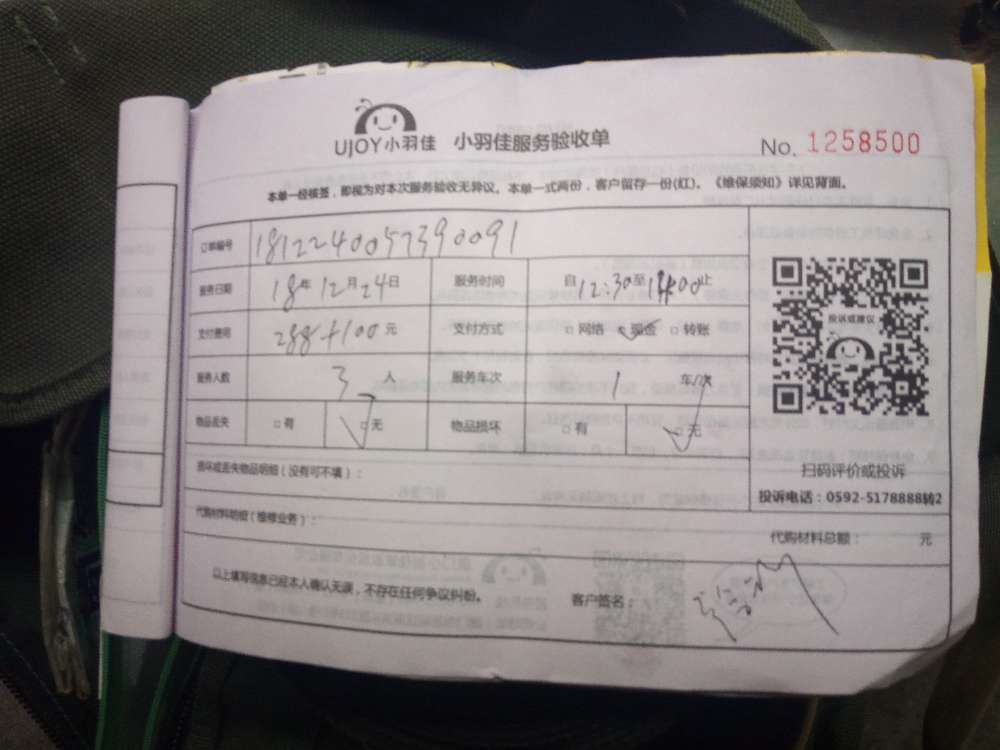 UJOY小羽佳 小羽佳服务验收单
No. 1258500
本单一经核签，即视为对本次服务验收无异议。本单一式两份，客户留存一份(红)。《维保须知》详见背面。
订单编号 1812240057390091
服务日期 18年12月24日 服务时间 自12:30至14:00止
支付费用 288+100元 支付方式 □网络 ✓现金 □转账
服务人数 3人 服务车次 1 车/次
物品丢失 □有 ✓无 物品损坏 □有 ✓无
投诉或建议
扫码评价或投诉
投诉电话：0592-5178888转2
损坏或丢失物品明细（没有可不填）：
代购材料明细（维修业务）：
代购材料总额： 元
以上填写信息已经本人确认无误，不存在任何争议纠纷。 客户签名：